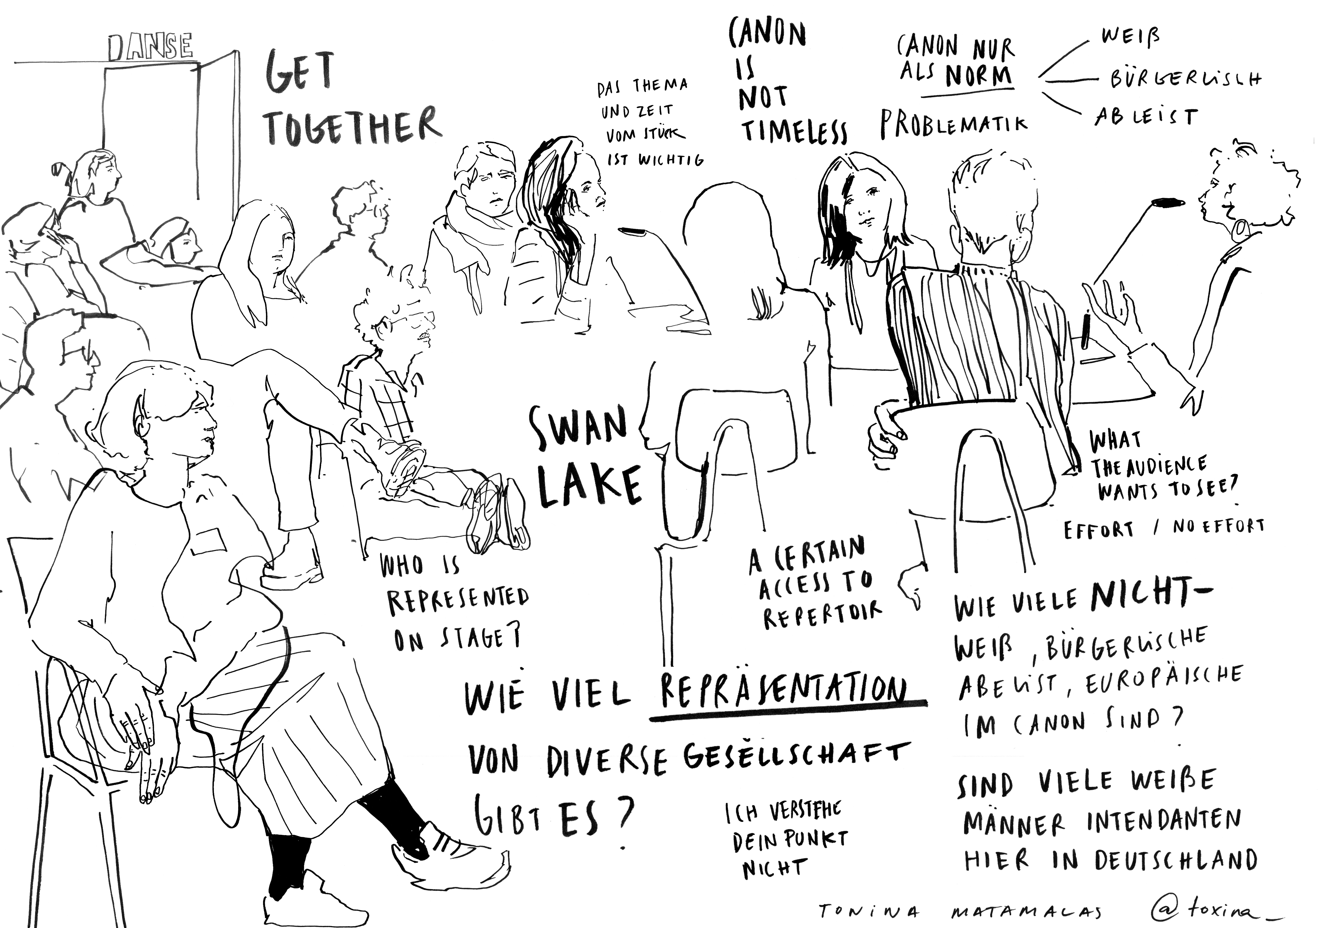 DANSE
GET
TOGETHER
DAS THEMA
UND ZEIT
VOM STÜCK
IST WICHTIG
CANON
IS
NOT
TIMELESS
CANON NUR
ALS NORM
PROBLEMATIK
WEIß
BÜRGERLISCH
ABLEIST
SWAN
LAKE
WHAT
THE AUDIENCE
WANTS TO SEE?
EFFORT / NO EFFORT
WHO IS
REPRESENTED
ON STAGE?
A CERTAIN
ACCESS TO
REPERTOIR
WIE VIELE NICHT-
WEIß, BÜRGERLISCHE
ABELIST, EUROPÄISCHE
IM CANON SIND?
WIE VIEL REPRÄSENTATION
VON DIVERSE GESELLSCHAFT
GIBT ES?
ICH VERSTEHE
DEIN PUNKT
NICHT
SIND VIELE WEIßE
MÄNNER INTENDANTEN
HIER IN DEUTSCHLAND
TONINA MATAMALAS @toxina_